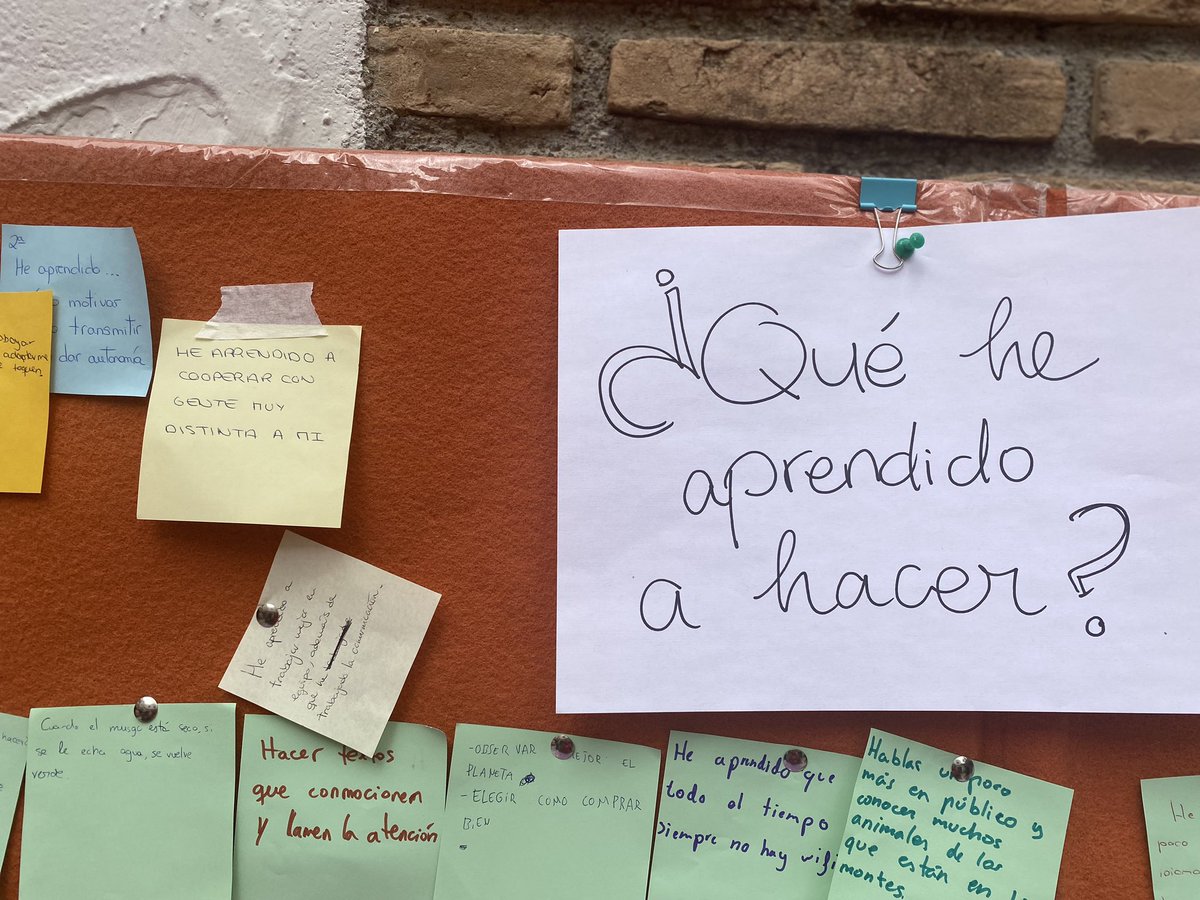 ¿Qué he
aprendido
a hacer?
2ª
He aprendido...
motivar
transmitir
dar autonomía
HE APRENDIDO A
COOPERAR CON
GENTE MUY
DISTINTA A MI
He aprendido a
trabajar mejor en
equipo, además de
que he
trabajado la comunicación.
Cuando el musgo está seco, si
se le echa agua, se vuelve
verde
Hacer textos
que conmocionen
y llamen la atención
-OBSERVAR MEJOR EL
PLANETA
-ELEGIR COMO COMPRAR
BIEN
He aprendido que
todo el tiempo
siempre no hay
Hablar un poco
más en público y
conocer muchos
animales de los
que están en
montes.
He
poco